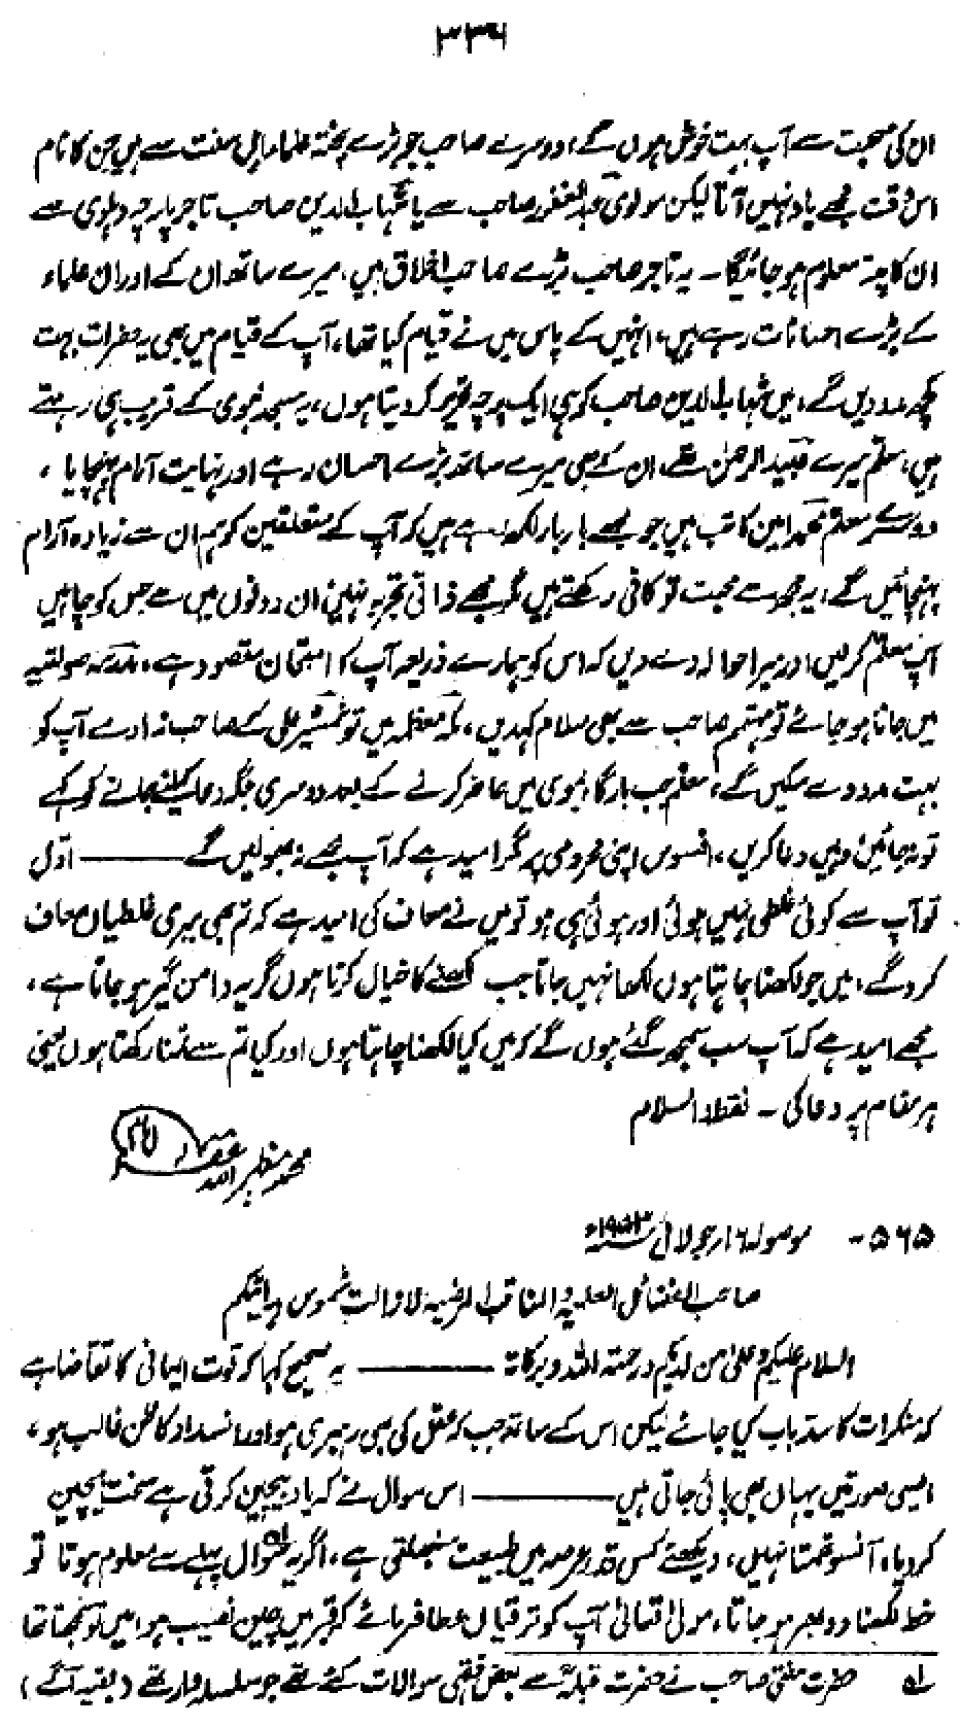 ۳۳۶
ان کی صحبت سے آپ بہت خوش ہوں گے، دوسرے صاحب جو بڑے پختہ علماء اہل سنت سے ہیں جن کا نام
اس وقت مجھے یاد نہیں آتا لیکن مولوی عبدالغفور صاحب سے یا شہاب الدین صاحب تاجر پارچہ دہلوی سے
ان کا پتہ معلوم ہو جائیگا ۔ یہ تاجر صاحب بڑے صاحب اخلاق ہیں، میرے ساتھ ان کے اور ان علماء
کے بڑے احسانات رہے ہیں، انہیں کے پاس میں نے قیام کیا تھا، آپ کے قیام میں بھی یہ حضرات بہت
کچھ مدد دیں گے، میں شہاب الدین صاحب کو ہی ایک پرچہ تحریر کر دیتا ہوں، یہ مسجد نبوی کے قریب ہی رہتے
ہیں، معلم میرے عبید الرحمٰن تھے، ان کے بھی میرے ساتھ بڑے احسان رہے اور نہایت آرام پہنچایا ،
دوسرے معلم محمد امین کاتب ہیں جو مجھے بار بار لکھ رہے ہیں کہ آپ کے متعلقین کو ہم ان سے زیادہ آرام
پہنچائیں گے، یہ مجھ سے محبت تو کافی رکھتے ہیں مگر مجھے ذاتی تجربہ نہیں، ان دونوں میں سے جس کو چاہیں
آپ معلم کر لیں اور میرا حوالہ دے دیں کہ اس کو ہمارے ذریعہ آپ کا امتحان مقصود ہے، مدرسہ صولتیہ
میں جانا ہو جائے تو مہتمم صاحب سے بھی سلام کہدیں، مکہ معظمہ میں تو شمشیر علی کے صاحب زادے آپ کو
بہت مدد دے سکیں گے، معلم جب بارگاہ نبوی میں حاضر کرنے کے بعد دوسری جگہ دعا کیلئے جانے کو کہے
تو نہ جائیں وہیں دعا کریں، افسوس اپنی محرومی پہ مگر امید ہے کہ آپ مجھے نہ بھولیں گے ——— اوّل
تو آپ سے کوئی غلطی نہیں ہوئی اور ہوئی ہی ہو تو میں نے معاف کی امید ہے کہ تم بھی میری غلطیاں معاف
کر دو گے، میں جو لکھنا چاہتا ہوں لکھا نہیں جاتا جب لکھنے کا خیال کرتا ہوں گریہ دامن گیر ہو جاتا ہے،
مجھے امید ہے کہ آپ سب سمجھ گئے ہوں گے کہ میں کیا لکھنا چاہتا ہوں اور کیا تم سے تمنا رکھتا ہوں یعنی
ہر مقام پر دعا کی ۔ فقط والسلام
محمد مظہر اللہ غفرلہ
۵۶۵ - موصولہ ۱۶ جولائی ۱۹۵۳ء
صاحب الفضائل العلیہ والمناقب المرضیہ لازالت شموس ہدایتکم
السلام علیکم وعلیٰ من لدیکم ورحمۃ اللہ وبرکاتہ ——— یہ صحیح کہا کہ قوت ایمانی کا تقاضا ہے
کہ منکرات کا سدباب کیا جائے لیکن اس کے ساتھ جب کہ عقل کی بھی رہبری ہو اور انسداد کا ظن غالب ہو،
ایسی صورتیں یہاں بھی پائی جاتی ہیں ——— اس سوال نے کہ یاد بیچین کرتی ہے سخت بیچین
کر دیا، آنسو تھمتا نہیں، دیکھئے کس قدر عرصہ میں طبیعت سنبھلتی ہے، اگر یہ سوال پہلے سے معلوم ہوتا تو
خط لکھنا دوبھر ہو جاتا، مولیٰ تعالیٰ آپ کو ترقیاں عطا فرمائے کہ قبر میں چین نصیب ہو، میں تو سمجھتا تھا
لہ حضرت مفتی صاحب نے حضرت قبلہ سے بعض فقہی سوالات کئے تھے جو سلسلہ وار تھے (بقیہ آگے)